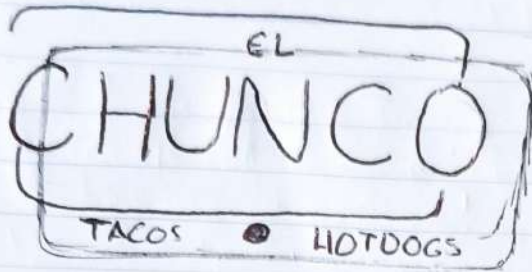 EL
CHUNCO
TACOS • HOTDOGS